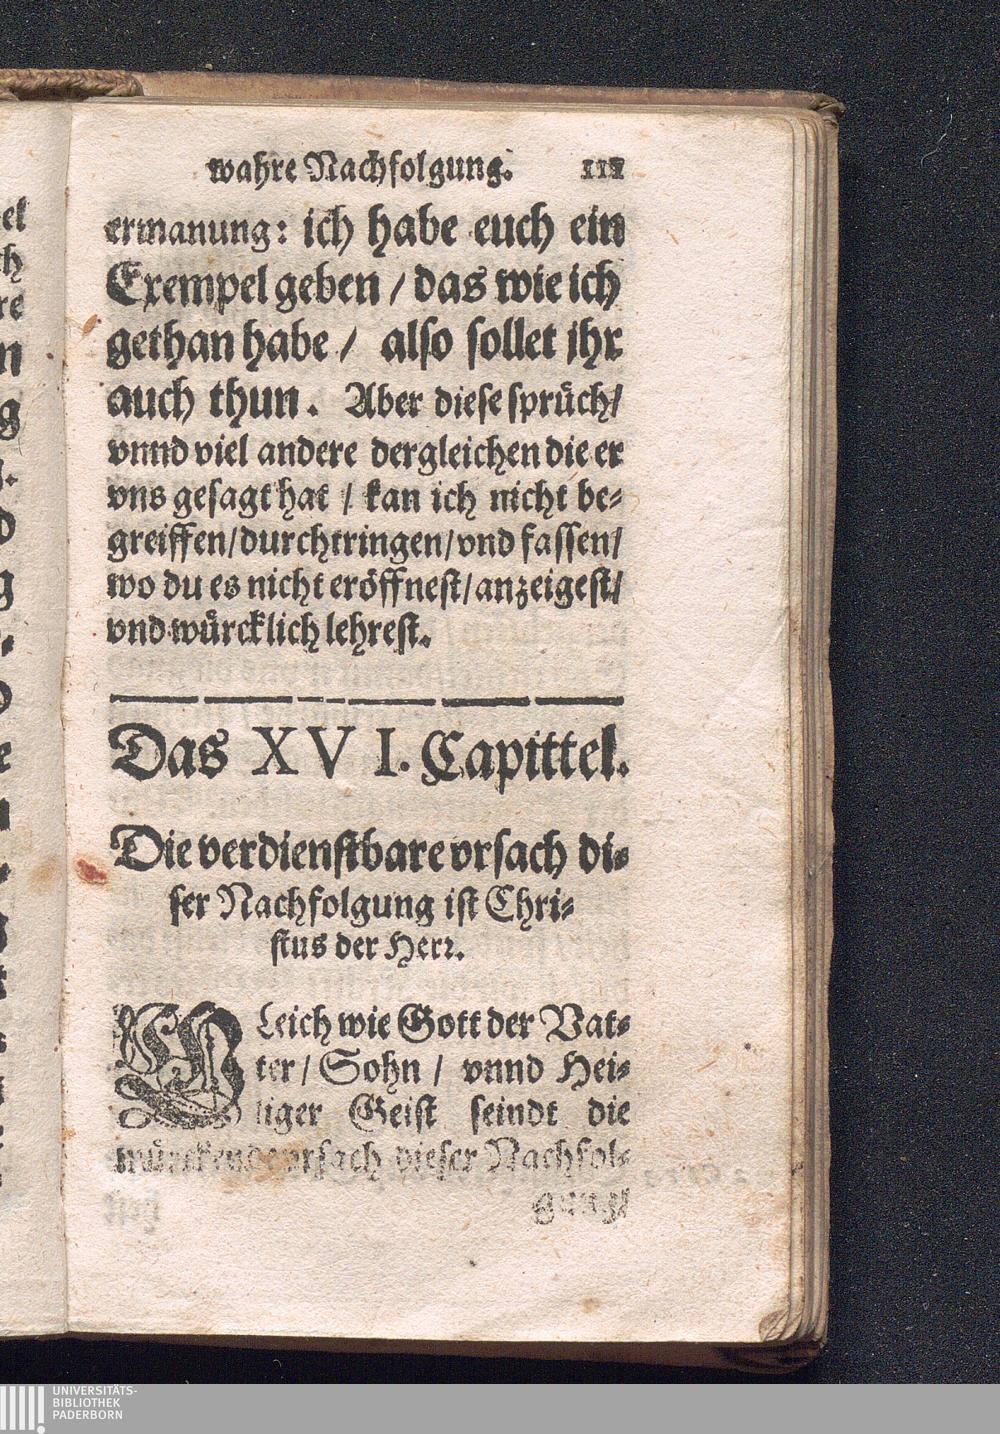 wahre Nachfolgung. 111
ermanung: ich habe euch ein
Exempel geben / das wie ich
gethan habe / also sollet jhr
auch thun. Aber diese sprüch/
vnnd viel andere dergleichen die er
vns gesagt hat / kan ich nicht be-
greiffen/durchtringen/vnd fassen/
wo du es nicht eröffnest/anzeigest/
vnd würcklich lehrest.
Das XVI. Capittel.
Die verdienstbare vrsach di-
ser Nachfolgung ist Chri-
stus der Herr.
GLeich wie Gott der Vat-
ter / Sohn / vnnd Hei-
liger Geist seindt die
würckende vrsach dieser Nachfol-
gung/
UNIVERSITÄTS-
BIBLIOTHEK
PADERBORN